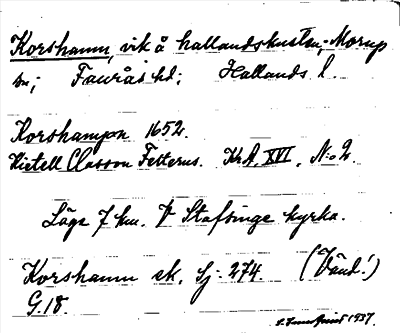 Korshamn, vik å hallandskusten; Morup
sn; Faurås hd; Hallands l.
Korshampn 1652.
Kietell Classon Fetterus. KrA. XVI, No 2.
Läge 7 km. V Stafsinge kyrka.
Korshamn ek. Sj. 274 (Vänd!)
G. 18.
1937.